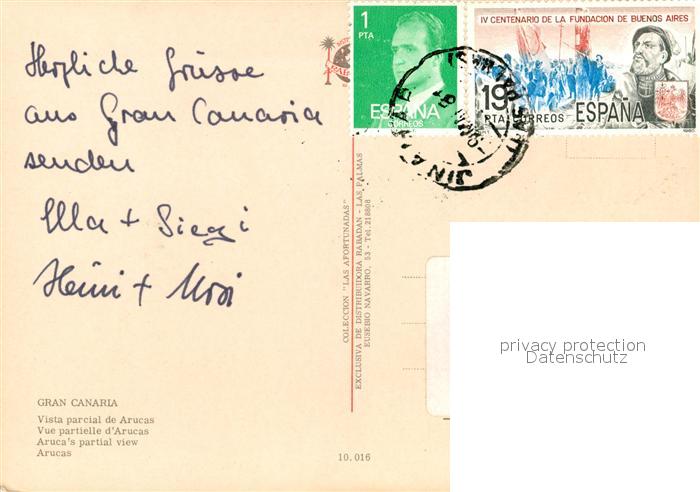 Herzliche Grüsse
aus Gran Canaria
senden
Ulla + Siegi
Heini + Ursi
GRAN CANARIA
Vista parcial de Arucas
Vue partielle d'Arucas
Aruca's partial view
Arucas
10.016
COLECCION "LAS AFORTUNADAS"
EXCLUSIVA DE DISTRIBUIDORA RABADAN - LAS PALMAS
EUSEBIO NAVARRO, 53 - Tel. 218808
1
PTA
ESPAÑA
CORREOS
IV CENTENARIO DE LA FUNDACION DE BUENOS AIRES
19
PTA CORREOS ESPAÑA
privacy protection
Datenschutz